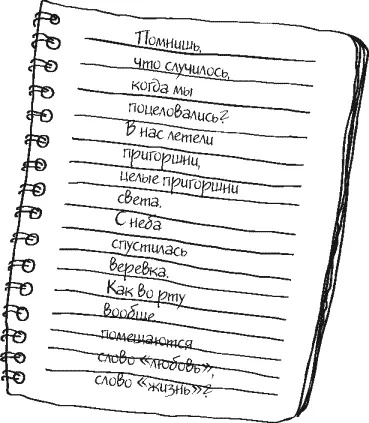 Помнишь,
что случилось,
когда мы
поцеловались?
В нас летели
пригоршни,
целые пригоршни
света.
С неба
спустилась
веревка.
Как во рту
вообще
помещаются
слово «любовь»,
слово «жизнь»?